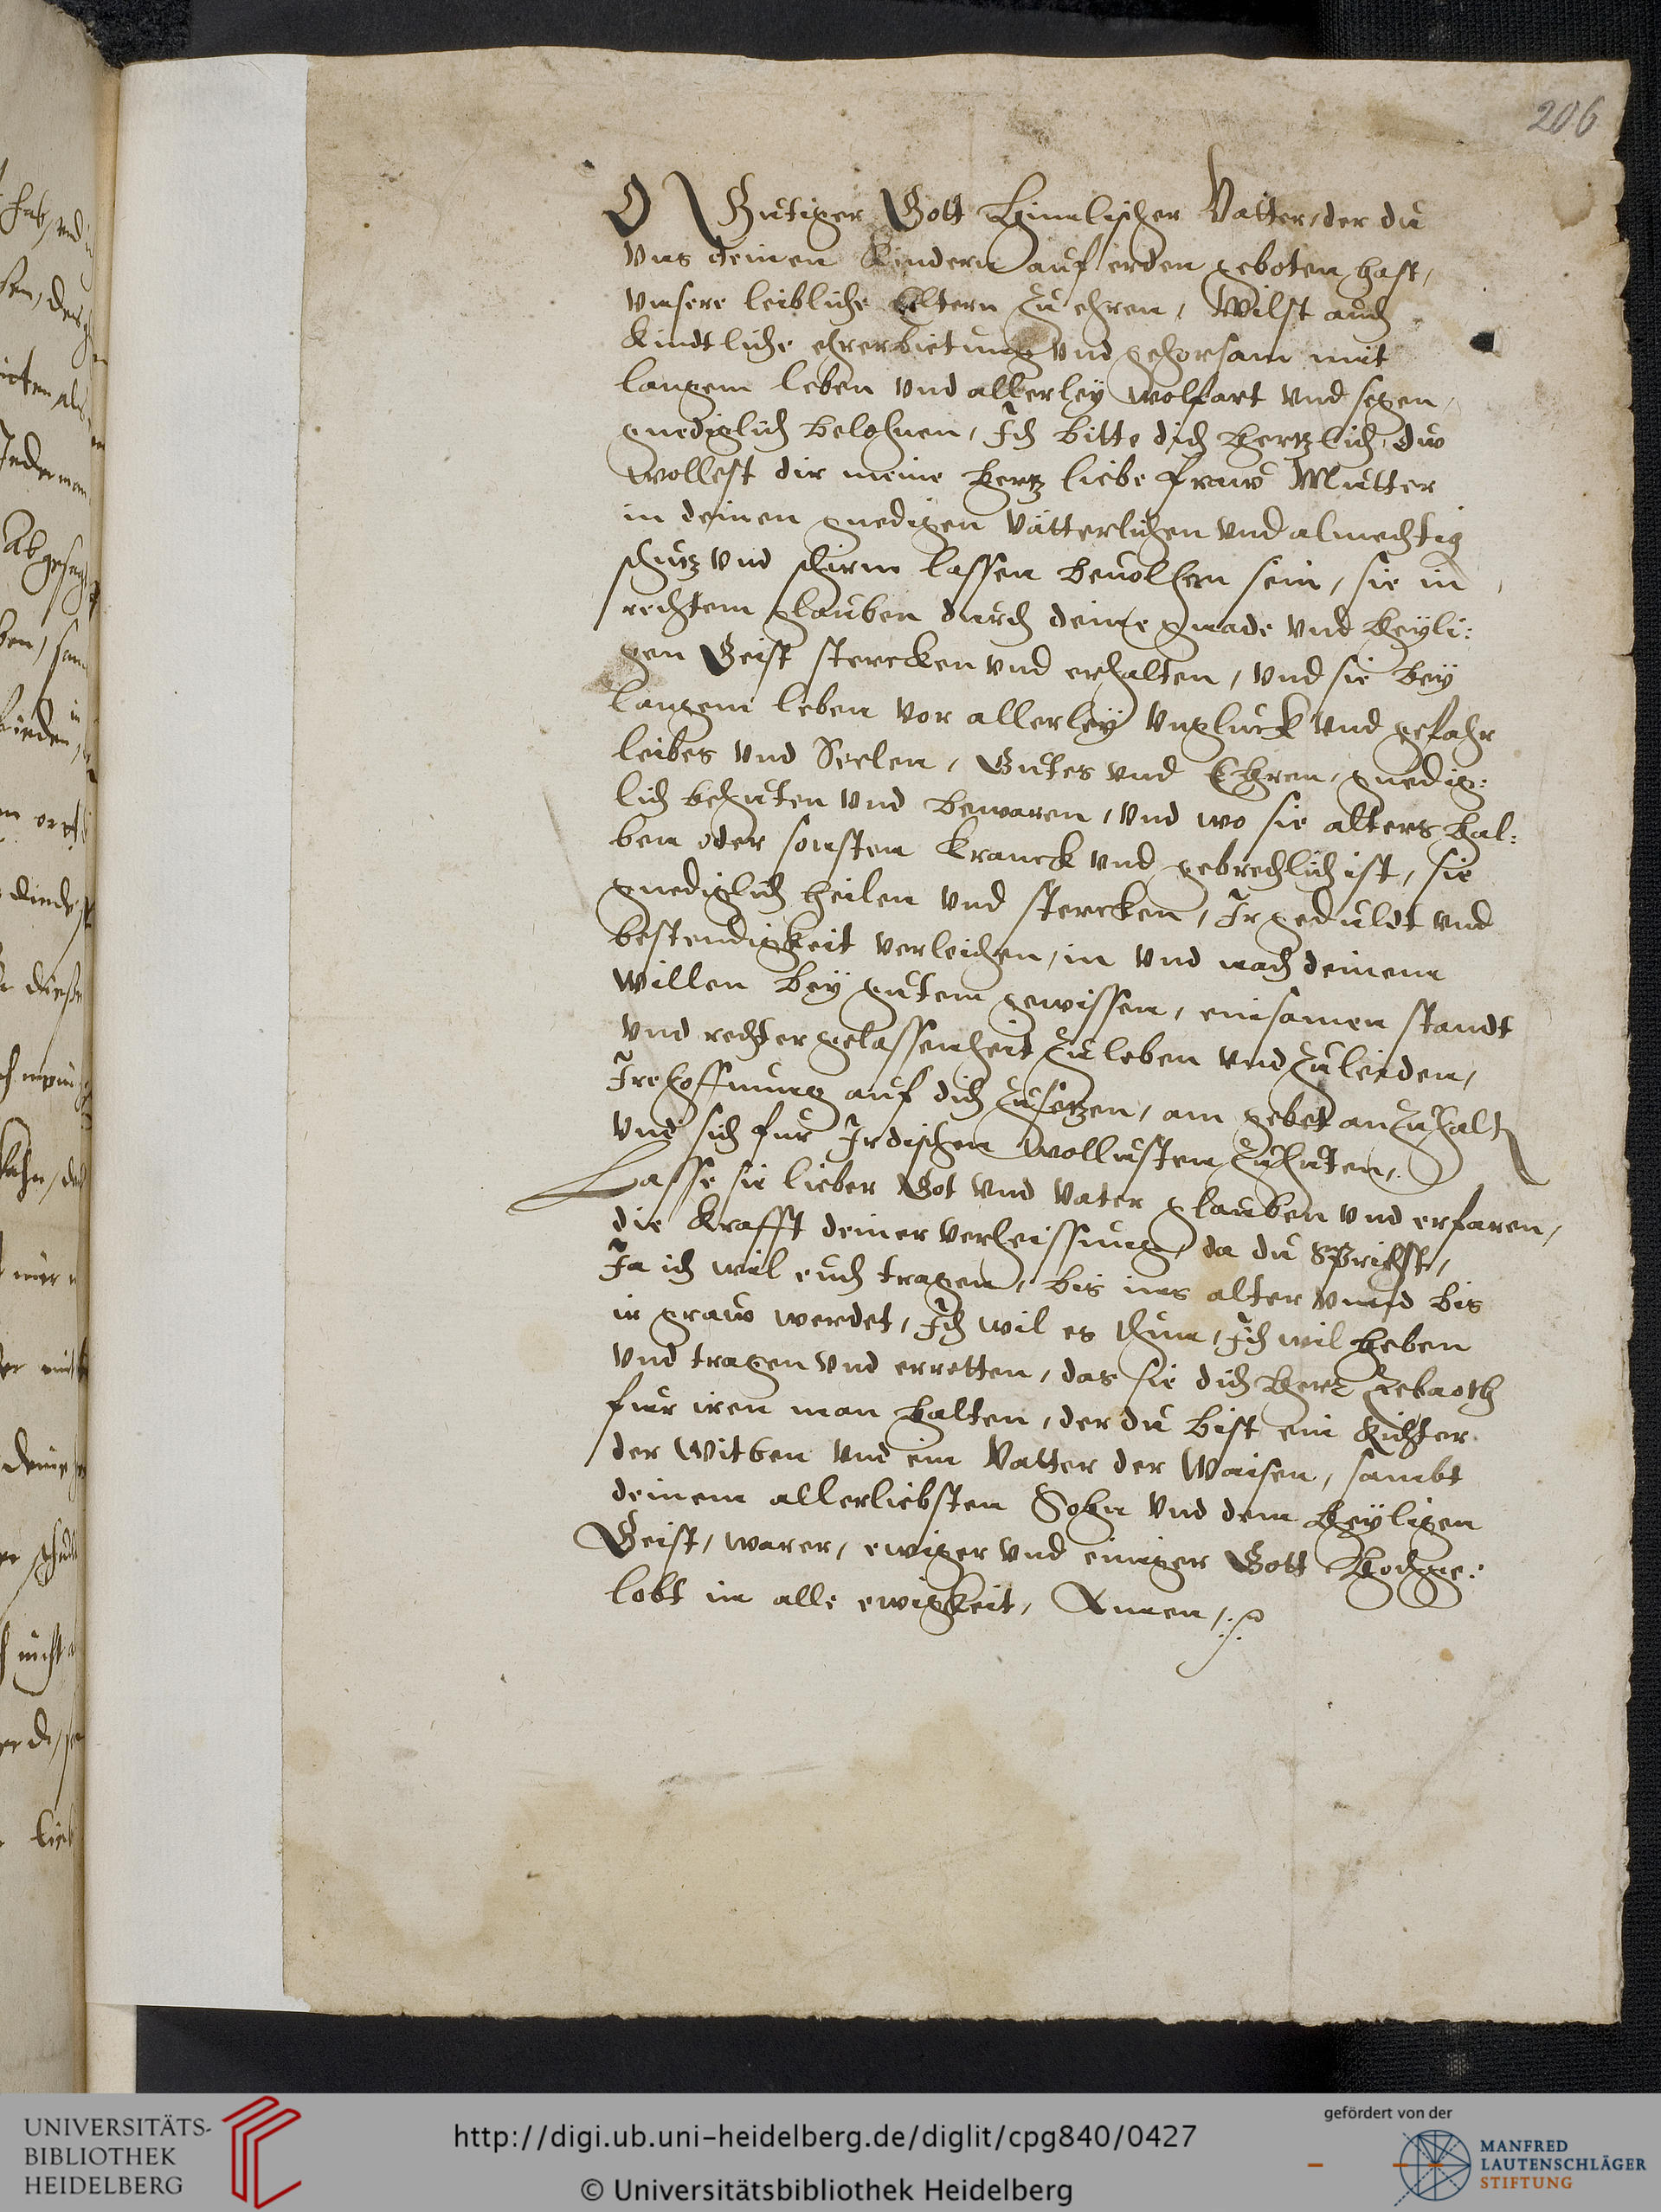 206
O Gütiger Gott Himlischer Vatter, der dü
vns deinen Kindern auf erden geboten hast,
vnsere leibliche Eltern zü ehren, Wilst aüch
Kindtliche ehrerbietüng vnd gehorsam mit
langem leben vnd allerley wolfart vnd segen,
gnediglich belohnen, Ich bitte dich hertzlich, dw
wollest dir meine hertz liebe fraw Mütter
in deinen gnedigen vätterlichen vnd almechtig
schütz vnd schirm lassen beuolhen sein, sie in
rechtem glaüben dürch deine gnade vnd heyli:
gen Geist stercken vnd erhalten, vnd sie bey
langem leben vor allerley vnglück vnd gefahr
leibes vnd Seelen, Gütes vnd Ehren, gnedig:
lich behüten vnd bewaren, vnd wo sie alters hal:
ben oder sonsten kranck vnd gebrechlich ist, sie
gnediglich heilen vnd stercken, Ir gedüldt vnd
bestendigkeit verleichen, in vnd nach deinem
willen bey gütem gewissen, einsamen standt
vnd rechter gelassenheit zü leben vnd zü leiden,
Ire hoffnüng aüf dich zü setzen, am gebet an zü halt
vnd sich für Irdischen wollüsten zü hüten,
Lasse sie lieber Got vnd Vater glaüben vnd erfaren,
die krafft deiner verheissüng, da dü Sprichst,
Ja ich wil eüch tragen, bis ins alter vnnd bis
ir graw werdet, Ich wil es thün, Ich wil heben
vnd tragen vnd erretten, das sie dich Herr Zebaoth
für iren man halten, der dü bist ein Richter
der Witben vnd ein Vatter der Waisen, sambt
deinem allerliebsten Sohn vnd dem heyligen
Geist, warer, ewiger vnd einiger Gott Hochge:
lobt in alle ewigkeit, Amen,
UNIVERSITÄTS-
BIBLIOTHEK
HEIDELBERG
http://digi.ub.uni-heidelberg.de/diglit/cpg840/0427
© Universitätsbibliothek Heidelberg
gefördert von der
MANFRED
LAUTENSCHLÄGER
STIFTUNG